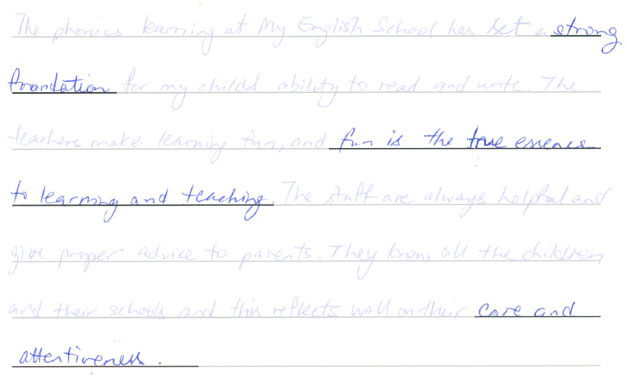 The phonics learning at My English School has set a strong
foundation for my child's ability to read and write. The
teachers make learning fun, and fun is the true essence
to learning and teaching. The staff are always helpful and
give proper advice to parents. They know all the children
and their schools and this reflects well on their care and
attentiveness.